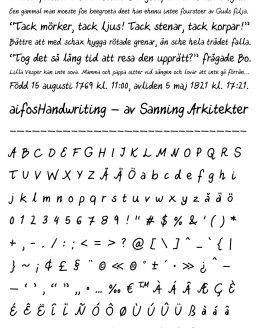 En gammal man moeste foe beegroeta deet han ehenu intee foerstoer av Guds filja.
"Tack mörker, tack ljus! Tack stenar, tack korpar!"
Bättre att med schax hygga rötade grenar, än sche hela trädet falla.
"Tog det så lång tid att resa den upprätt?" frågade Bo.
Lilla Vesper kan inte sova. Mamma och pappa sitter vid sängen och lovar att inte gå ifrån...
Född 15 augusti 1769 kl. 11:00, avliden 5 maj 1821 kl. 17:21.
aifosHandwriting – av Sanning Arkitekter
A B C D E F G H I J K L M N O P Q R S
T U V W X Y Z Å Ä Ö a b c d e f g h i
j k l m n o p q r s t u v w x y z å ä ö
0 1 2 3 4 5 6 7 8 9 ! " # $ % & ' ( ) *
+ , - . / : ; < = > ? @ [ \ ] ^ _ ` { |
} ~ ¡ ¢ £ § ¨ © « ® ° ± ´ · » ¿ ˆ –
— ' ' , " " „ • … ‰ € ™ À Á Â Æ Ç È
É Ê Ë Í Î Ï Ñ Ó Ô Ø Ù Ú Û Ü ß à á â